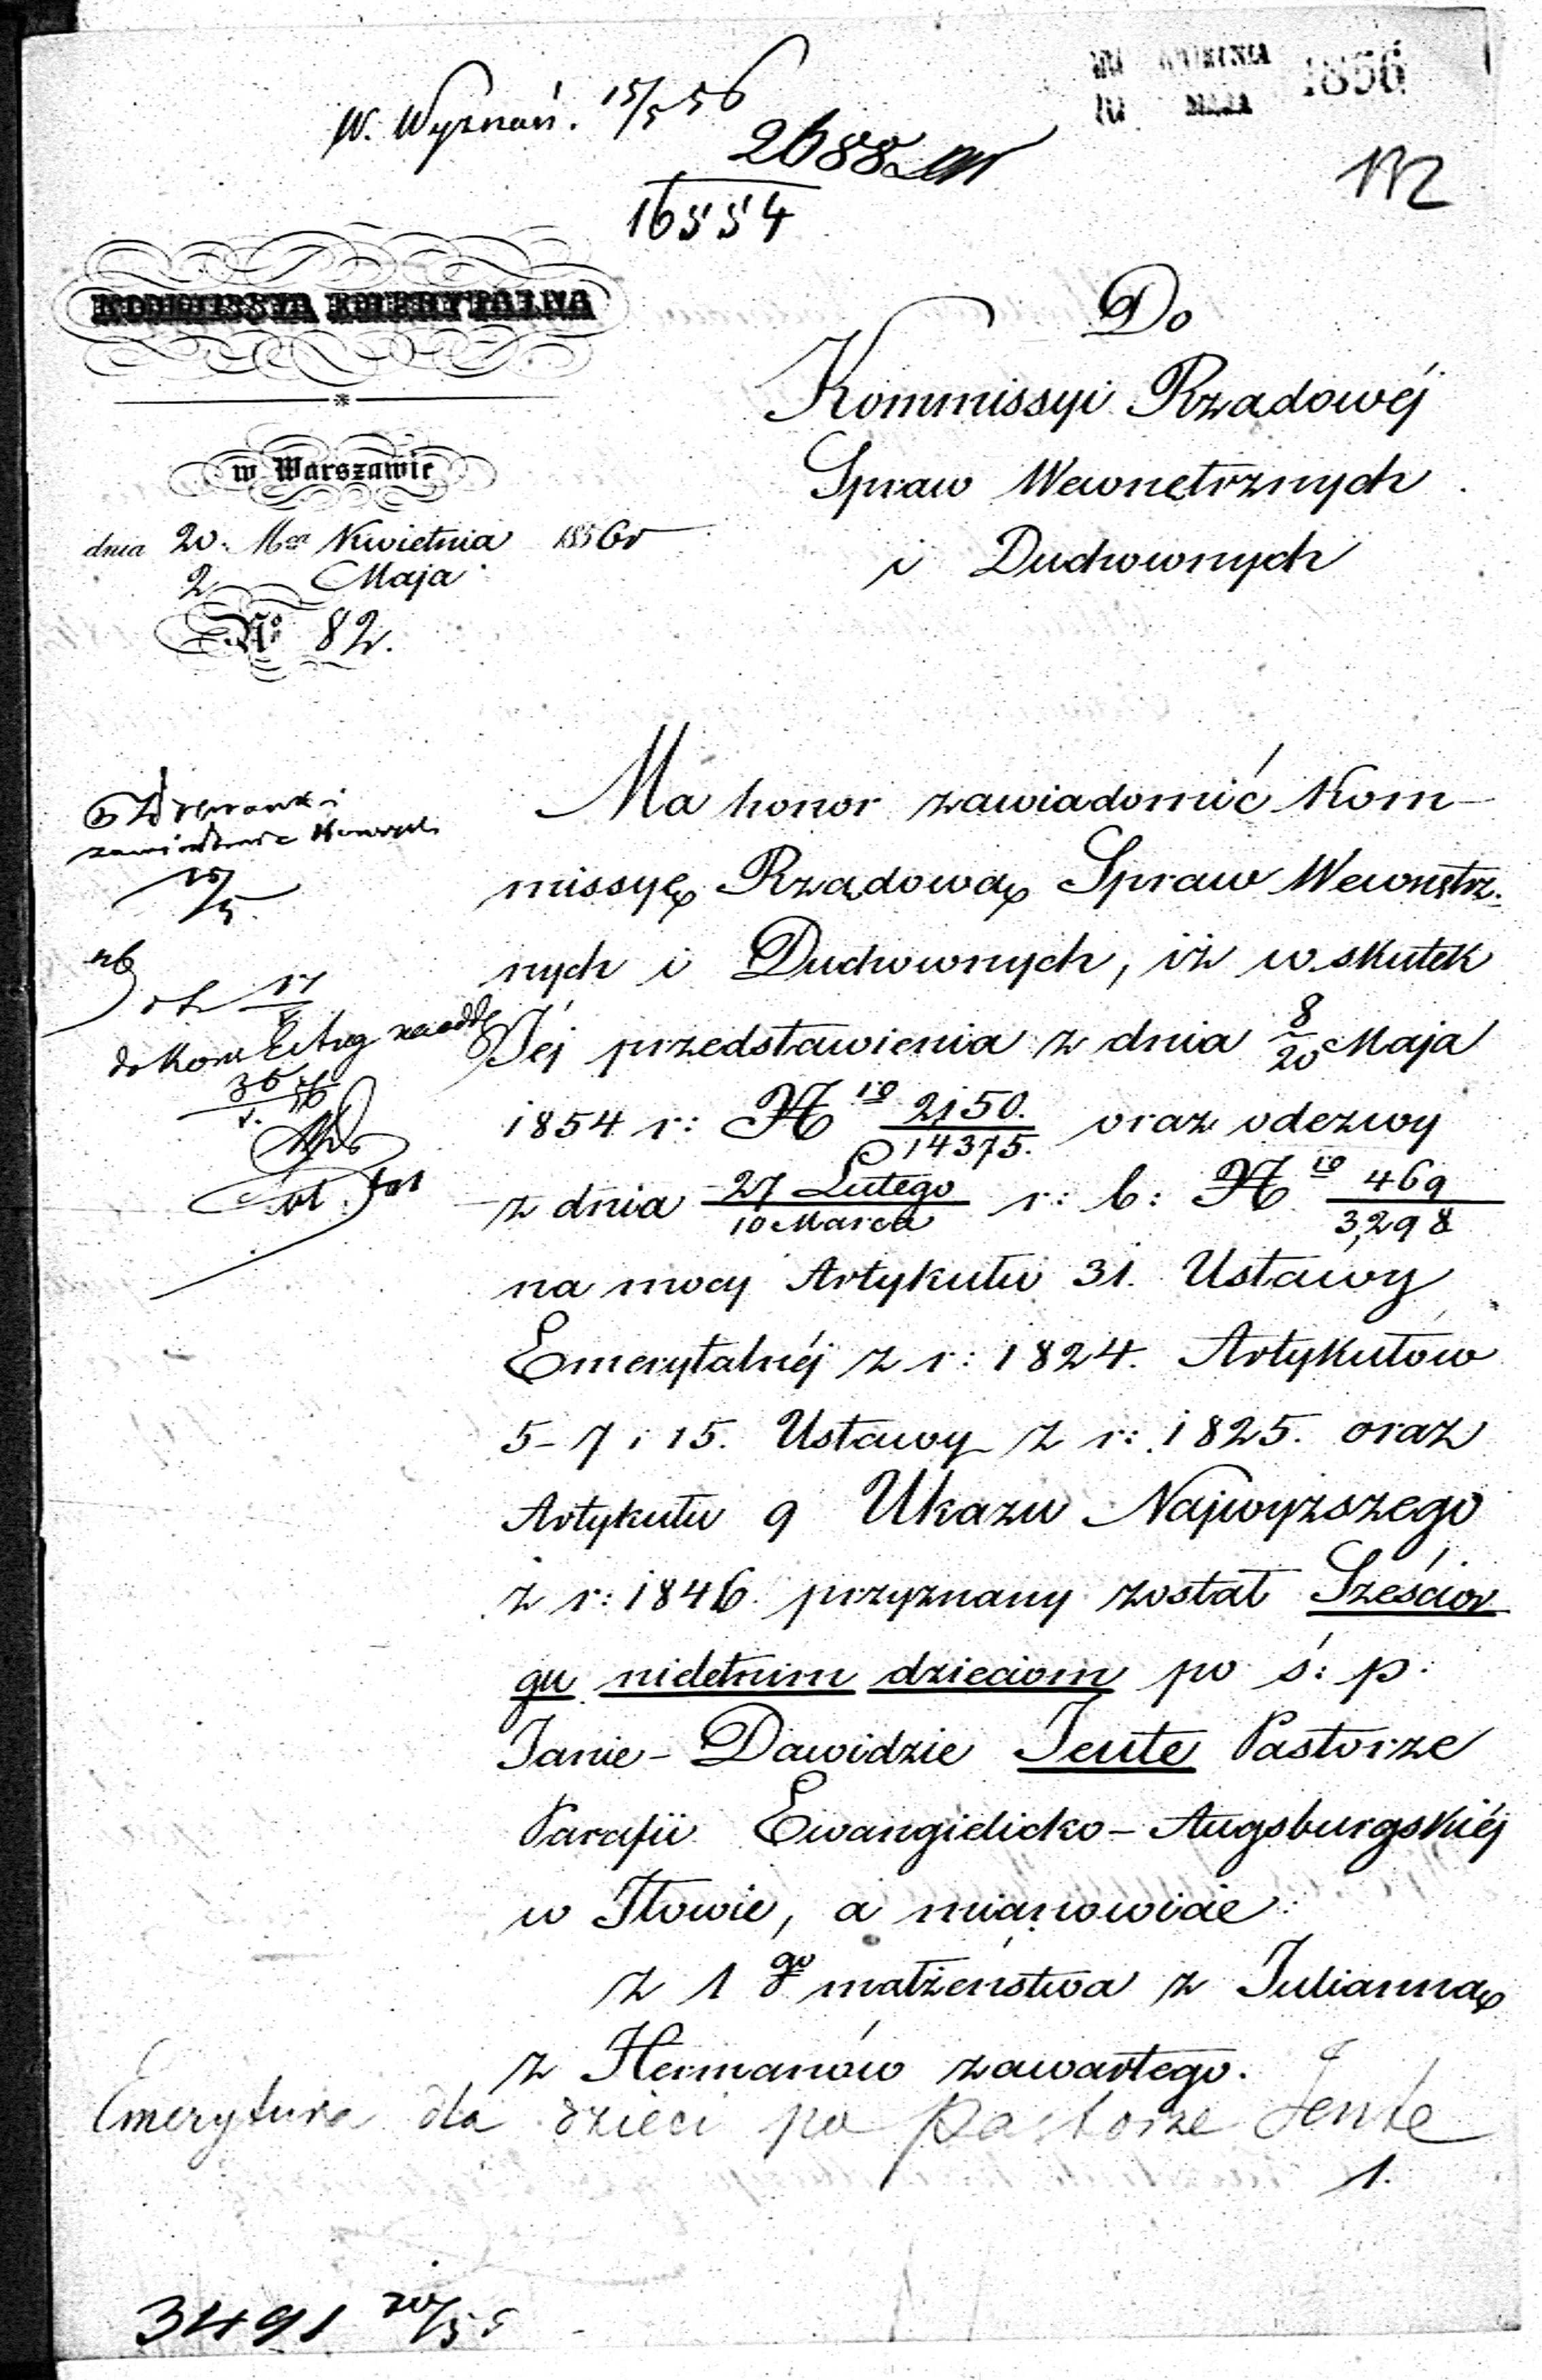 W. Wyznań. 15/5 56
2688
16554
1856
132
KOMMISSYA EMERYTALNA
w Warszawie
dnia 20. Mca Kwietnia 1856 r
2 Maja
No 82.
Do
Kommissyi Rządowéj
Spraw Wewnętrznych
i Duchownych
Ma honor zawiadomić Kom-
missyę Rządową Spraw Wewnętrz-
nych i Duchownych, iż w skutek
Jéj przedstawienia z dnia 8/20 Maja
1854 r: N ro 2150/14375. oraz odezwy
z dnia 27 Lutego/10 Marca r: b: N ro 469/3,298
na mocy Artykułu 31. Ustawy
Emerytalnéj z r: 1824. Artykułów
5-7 i 15. Ustawy z r: 1825. oraz
Artykułu 9 Ukazu Najwyższego
z r: 1846 przyznany został Sześcior
gu nieletnim dzieciom po ś: p.
Janie-Dawidzie Jente Pastorze
Parafii Ewangielicko-Augsburgskiéj
w Iłowie, a mianowicie:
z 1 go małżeństwa z Julianną
z Hermanów zawartego.
Emerytura dla dzieci po Pastorze Jente
1.
3491 20/5